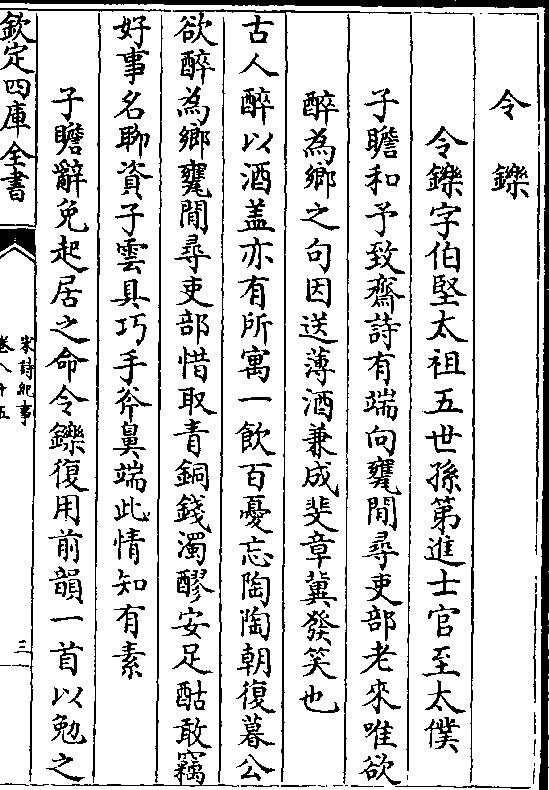 令鑠
令鑠字伯堅太祖五世孫第進士官至太僕
子瞻和予致齋詩有端向甕間尋吏部老來唯欲
醉為鄉之句因送薄酒兼成斐章冀發笑也
古人醉以酒盖亦有所寓一飲百憂忘陶陶朝復暮公
欲醉為鄉甕間尋吏部惜取青銅錢濁醪安足酤敢竊
好事名聊資子雲具巧手斧鼻端此情知有素
子瞻辭免起居之命令鑠復用前韻一首以勉之
欽定四庫全書
宋詩紀事
卷八十五
三